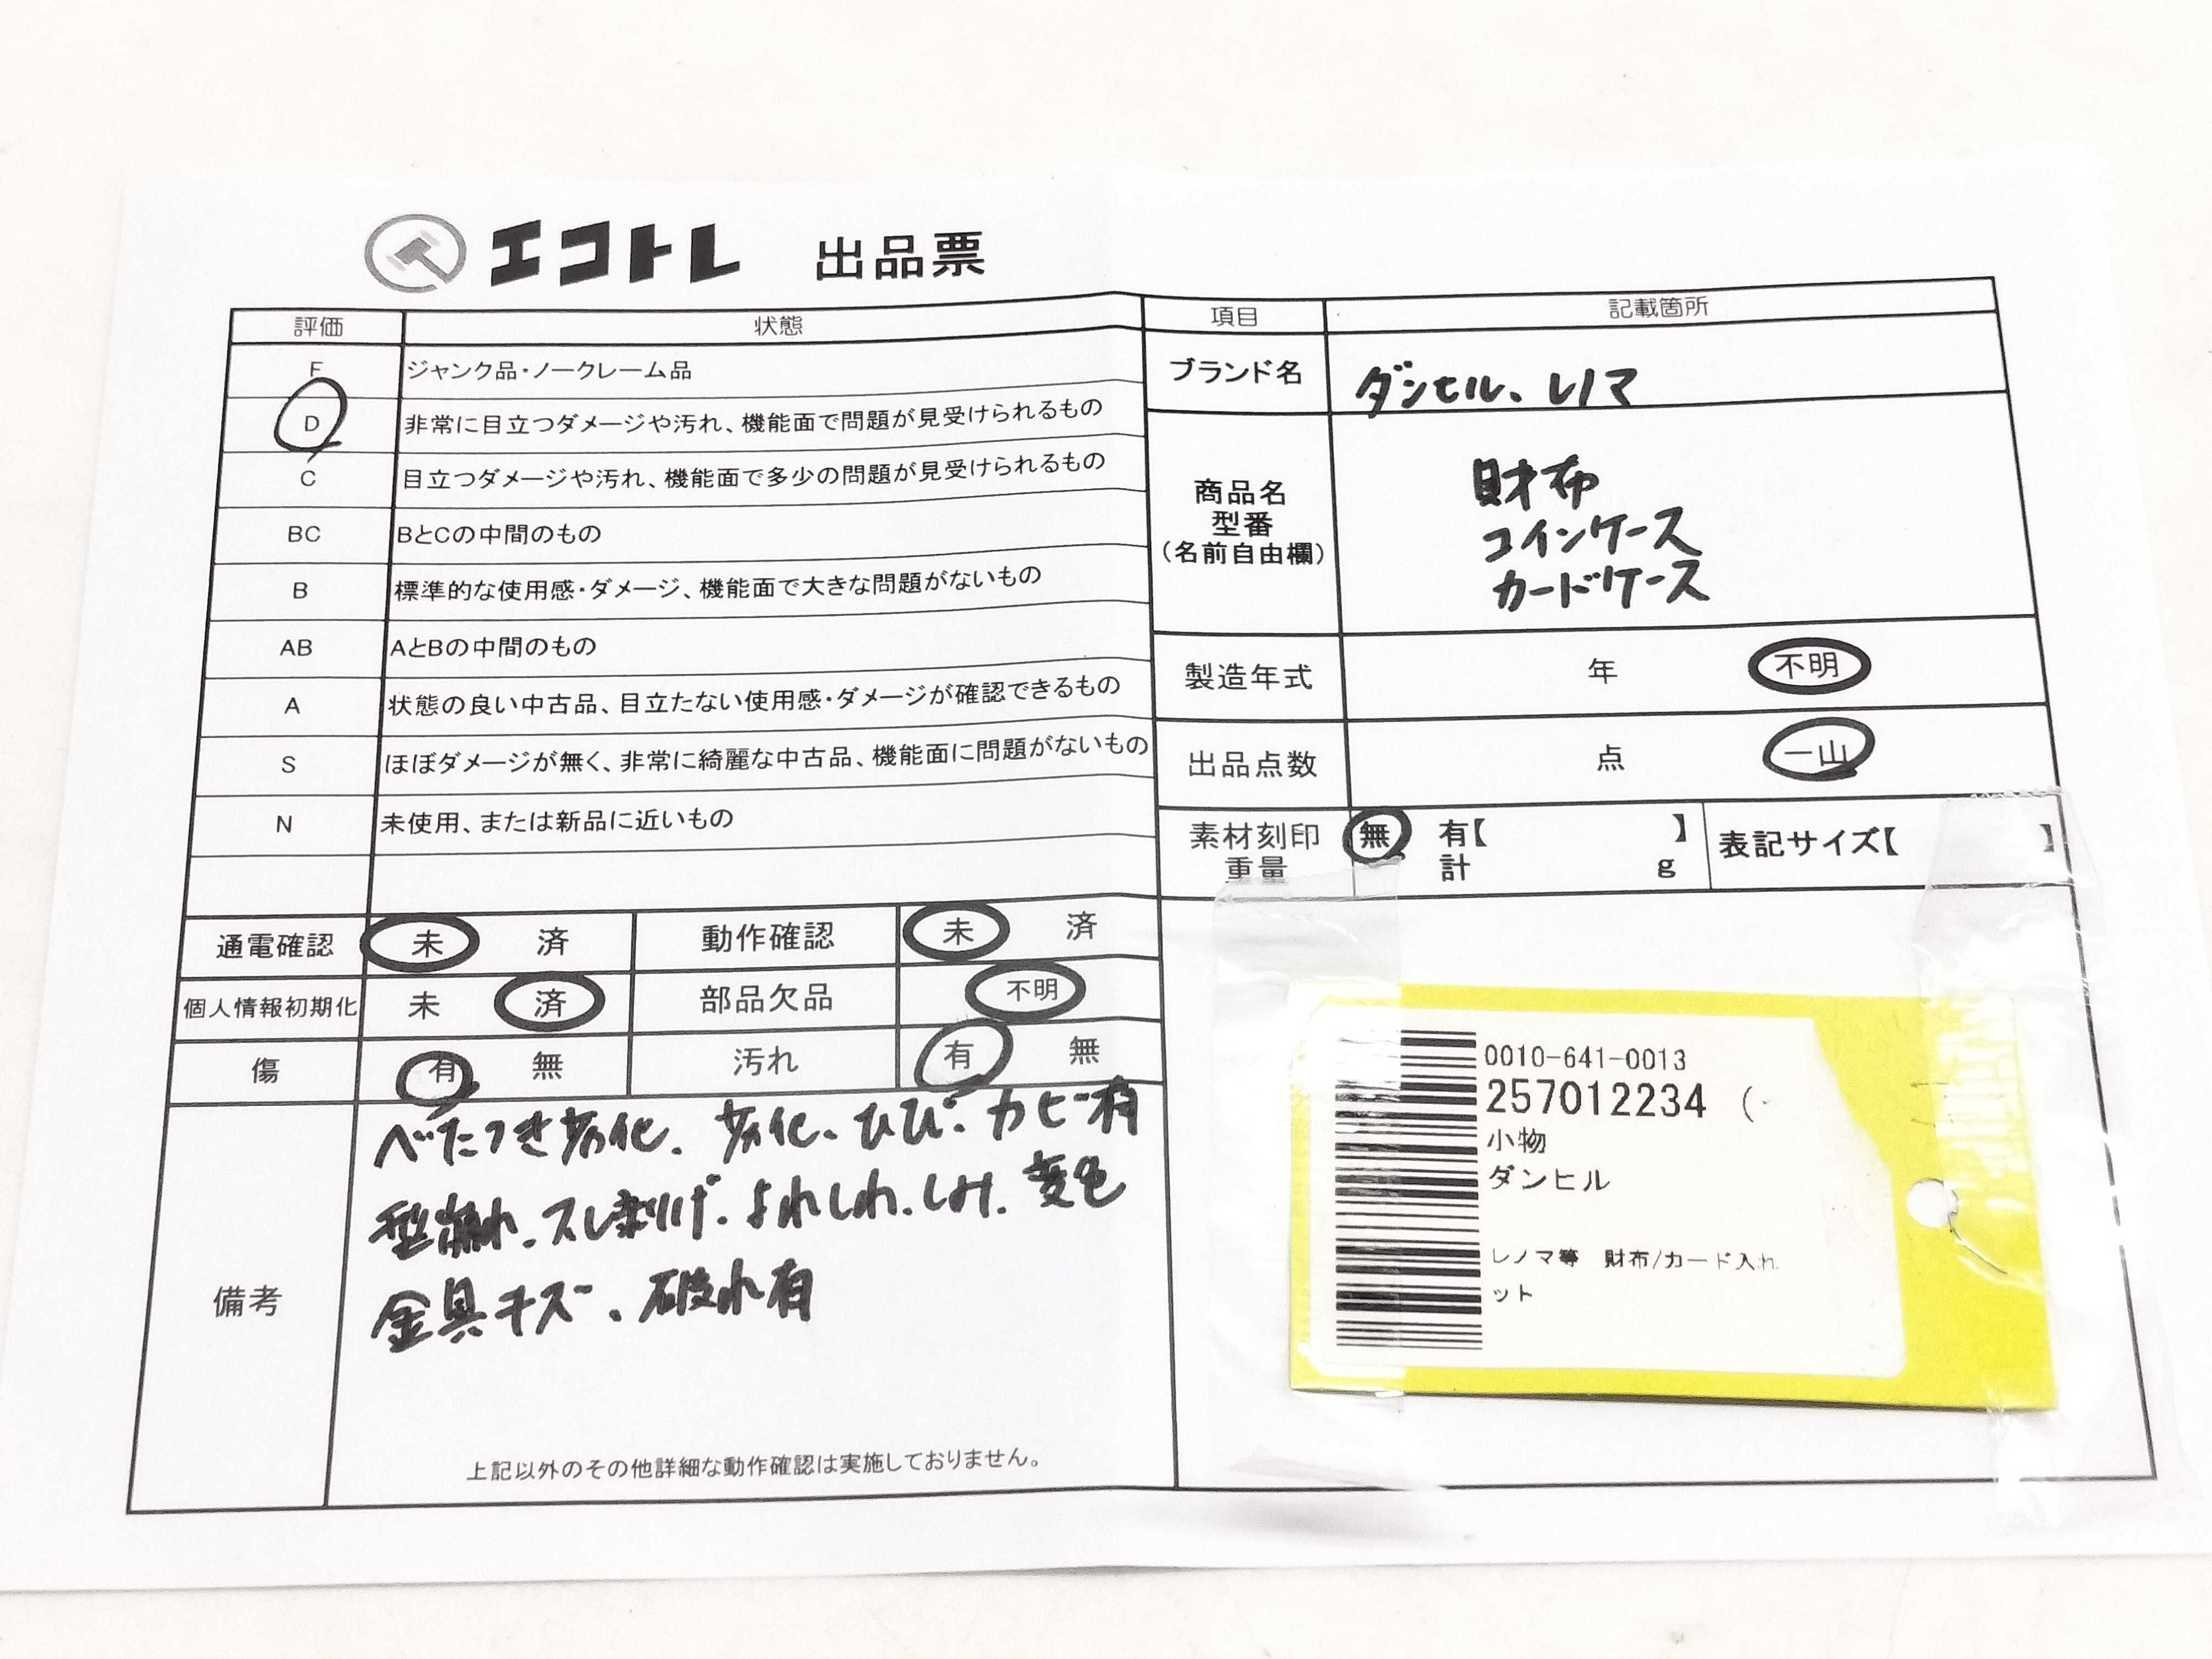 エコトレ 出品票
評価 状態
F ジャンク品・ノークレーム品
D 非常に目立つダメージや汚れ、機能面で問題が見受けられるもの
C 目立つダメージや汚れ、機能面で多少の問題が見受けられるもの
BC BとCの中間のもの
B 標準的な使用感・ダメージ、機能面で大きな問題がないもの
AB AとBの中間のもの
A 状態の良い中古品、目立たない使用感・ダメージが確認できるもの
S ほぼダメージが無く、非常に綺麗な中古品、機能面に問題がないもの
N 未使用、または新品に近いもの
通電確認 未 済 動作確認 未 済
個人情報初期化 未 済 部品欠品 不明
傷 有 無 汚れ 有 無
備考
べたつき劣化、劣化、ひび、カビ有
型崩れ、スレ剥げ、よれしわ、しみ、変色
金具キズ、破れ有
上記以外のその他詳細な動作確認は実施しておりません。
項目 記載箇所
ブランド名 ダンヒル、レノマ
商品名
型番
(名前自由欄)
財布
コインケース
カードケース
製造年式 年 不明
出品点数 点 一山
素材刻印 無 有【 】 表記サイズ【 】
重量 計 g
0010-641-0013
257012234 (
小物
ダンヒル
レノマ等 財布/カード入れ
ット